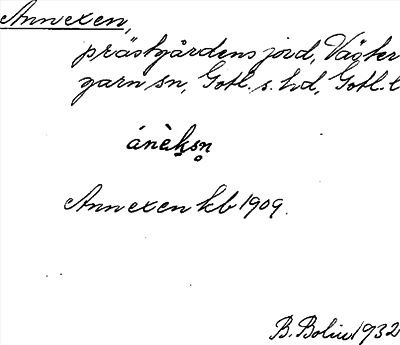 Annexen,
prästgårdens jord, Väster
garn sn, Gotl. s. hd, Gotl. l
ánèksn̥
Annexen kb 1909.
B. Bolin 1932